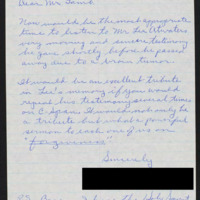 Dear Mr. Lamb
Now would be the most appropriate
time to listen to Mr Lee Atwaters
very moving and sincere testimony
he gave shortly before he passed
away due to a brain tumor.
It would be an excellent tribute
in Lee's memory if you would
repeat his testimony several times
on C-Span. It would not only be
a tribute but what a powerful
sermon to each one of us on
"forgiveness"
Sincerely
the Holy Spirit